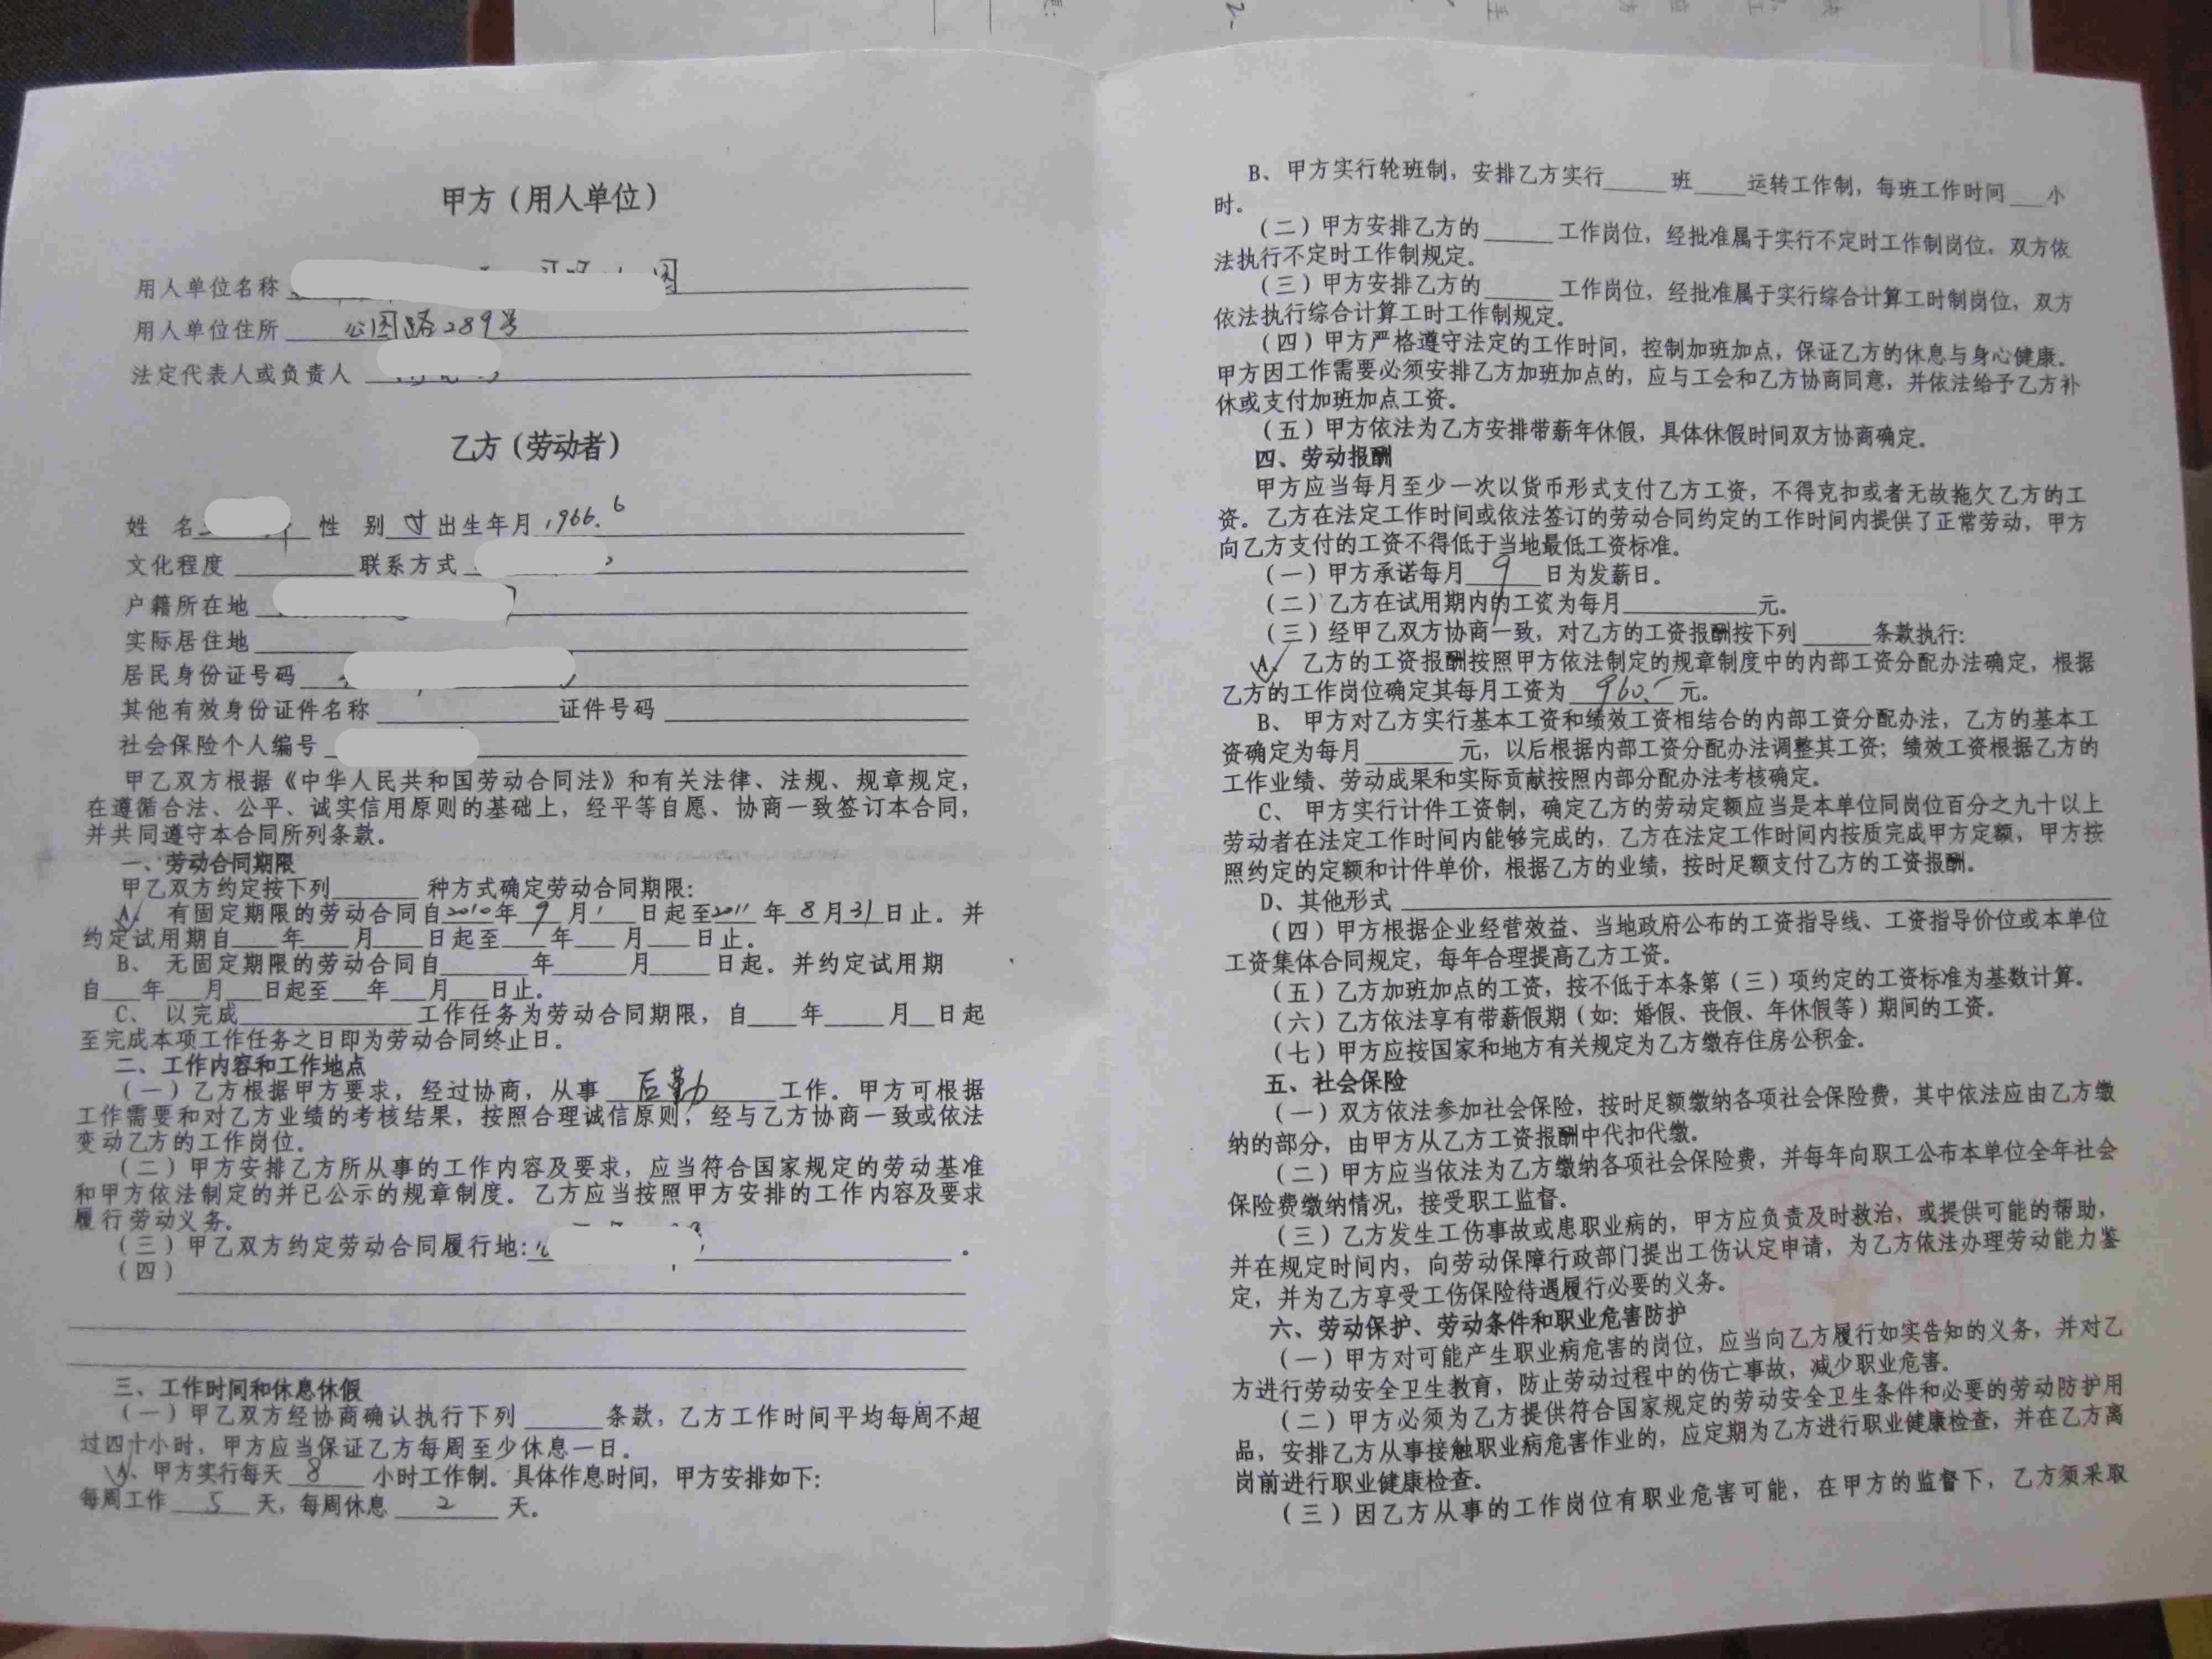 甲方（用人单位）
用人单位名称
用人单位住所 公园路289号
法定代表人或负责人
乙方（劳动者）
姓 名 性 别 出生年月 1966.6
文化程度 联系方式
户籍所在地
实际居住地
居民身份证号码
其他有效身份证件名称 证件号码
社会保险个人编号
甲乙双方根据《中华人民共和国劳动合同法》和有关法律、法规、规章规定，
在遵循合法、公平、诚实信用原则的基础上，经平等自愿、协商一致签订本合同，
并共同遵守本合同所列条款。
一、劳动合同期限
甲乙双方约定按下列____种方式确定劳动合同期限：
A、有固定期限的劳动合同自2010年9月1日起至2011年8月31日止。并
约定试用期自___年___月___日起至___年___月___日止。
B、无固定期限的劳动合同自____年____月____日起。并约定试用期
自___年___月___日起至___年___月___日止。
C、以完成________工作任务为劳动合同期限，自___年___月___日起
至完成本项工作任务之日即为劳动合同终止日。
二、工作内容和工作地点
（一）乙方根据甲方要求，经过协商，从事 后勤 工作。甲方可根据
工作需要和对乙方业绩的考核结果，按照合理诚信原则，经与乙方协商一致或依法
变动乙方的工作岗位。
（二）甲方安排乙方所从事的工作内容及要求，应当符合国家规定的劳动基准
和甲方依法制定的并已公示的规章制度。乙方应当按照甲方安排的工作内容及要求
履行劳动义务。
（三）甲乙双方约定劳动合同履行地：________。
（四）
三、工作时间和休息休假
（一）甲乙双方经协商确认执行下列____条款，乙方工作时间平均每周不超
过四十小时，甲方应当保证乙方每周至少休息一日。
A、甲方实行每天 8 小时工作制。具体作息时间，甲方安排如下：
每周工作 5 天，每周休息 2 天。
B、甲方实行轮班制，安排乙方实行____班____运转工作制，每班工作时间___小
时。
（二）甲方安排乙方的____工作岗位，经批准属于实行不定时工作制岗位，双方依
法执行不定时工作制规定。
（三）甲方安排乙方的____工作岗位，经批准属于实行综合计算工时制岗位，双方
依法执行综合计算工时工作制规定。
（四）甲方严格遵守法定的工作时间，控制加班加点，保证乙方的休息与身心健康。
甲方因工作需要必须安排乙方加班加点的，应与工会和乙方协商同意，并依法给予乙方补
休或支付加班加点工资。
（五）甲方依法为乙方安排带薪年休假，具体休假时间双方协商确定。
四、劳动报酬
甲方应当每月至少一次以货币形式支付乙方工资，不得克扣或者无故拖欠乙方的工
资。乙方在法定工作时间或依法签订的劳动合同约定的工作时间内提供了正常劳动，甲方
向乙方支付的工资不得低于当地最低工资标准。
（一）甲方承诺每月 9 日为发薪日。
（二）乙方在试用期内的工资为每月________元。
（三）经甲乙双方协商一致，对乙方的工资报酬按下列____条款执行：
A、乙方的工资报酬按照甲方依法制定的规章制度中的内部工资分配办法确定，根据
乙方的工作岗位确定其每月工资为 960.- 元。
B、甲方对乙方实行基本工资和绩效工资相结合的内部工资分配办法，乙方的基本工
资确定为每月____元，以后根据内部工资分配办法调整其工资；绩效工资根据乙方的
工作业绩、劳动成果和实际贡献按照内部分配办法考核确定。
C、甲方实行计件工资制，确定乙方的劳动定额应当是本单位同岗位百分之九十以上
劳动者在法定工作时间内能够完成的，乙方在法定工作时间内按质完成甲方定额，甲方按
照约定的定额和计件单价，根据乙方的业绩，按时足额支付乙方的工资报酬。
D、其他形式
（四）甲方根据企业经营效益、当地政府公布的工资指导线、工资指导价位或本单位
工资集体合同规定，每年合理提高乙方工资。
（五）乙方加班加点的工资，按不低于本条第（三）项约定的工资标准为基数计算。
（六）乙方依法享有带薪假期（如：婚假、丧假、年休假等）期间的工资。
（七）甲方应按国家和地方有关规定为乙方缴存住房公积金。
五、社会保险
（一）双方依法参加社会保险，按时足额缴纳各项社会保险费，其中依法应由乙方缴
纳的部分，由甲方从乙方工资报酬中代扣代缴。
（二）甲方应当依法为乙方缴纳各项社会保险费，并每年向职工公布本单位全年社会
保险费缴纳情况，接受职工监督。
（三）乙方发生工伤事故或患职业病的，甲方应负责及时救治，或提供可能的帮助，
并在规定时间内，向劳动保障行政部门提出工伤认定申请，为乙方依法办理劳动能力鉴
定，并为乙方享受工伤保险待遇履行必要的义务。
六、劳动保护、劳动条件和职业危害防护
（一）甲方对可能产生职业病危害的岗位，应当向乙方履行如实告知的义务，并对乙
方进行劳动安全卫生教育，防止劳动过程中的伤亡事故，减少职业危害。
（二）甲方必须为乙方提供符合国家规定的劳动安全卫生条件和必要的劳动防护用
品，安排乙方从事接触职业病危害作业的，应定期为乙方进行职业健康检查，并在乙方离
岗前进行职业健康检查。
（三）因乙方从事的工作岗位有职业危害可能，在甲方的监督下，乙方须采取